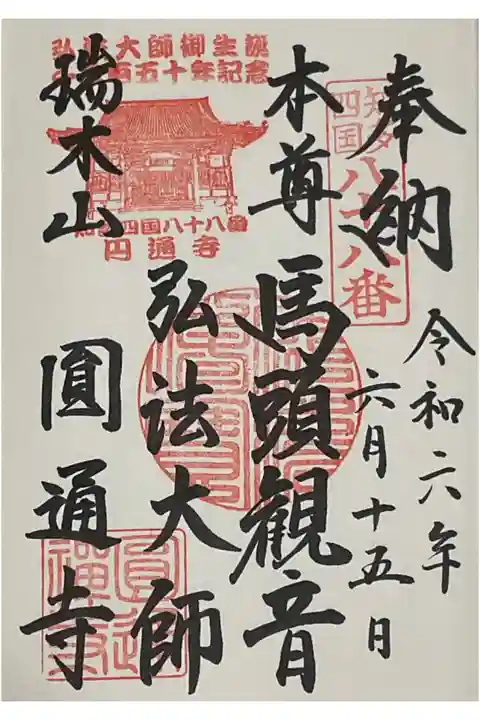 奉納
知多
四国
八十八番
令和六年
六月十五日
本尊
馬頭観音
弘法大師
弘法大師御生誕
千二百五十年記念
知多四国八十八番
円通寺
瑞木山
圓通寺